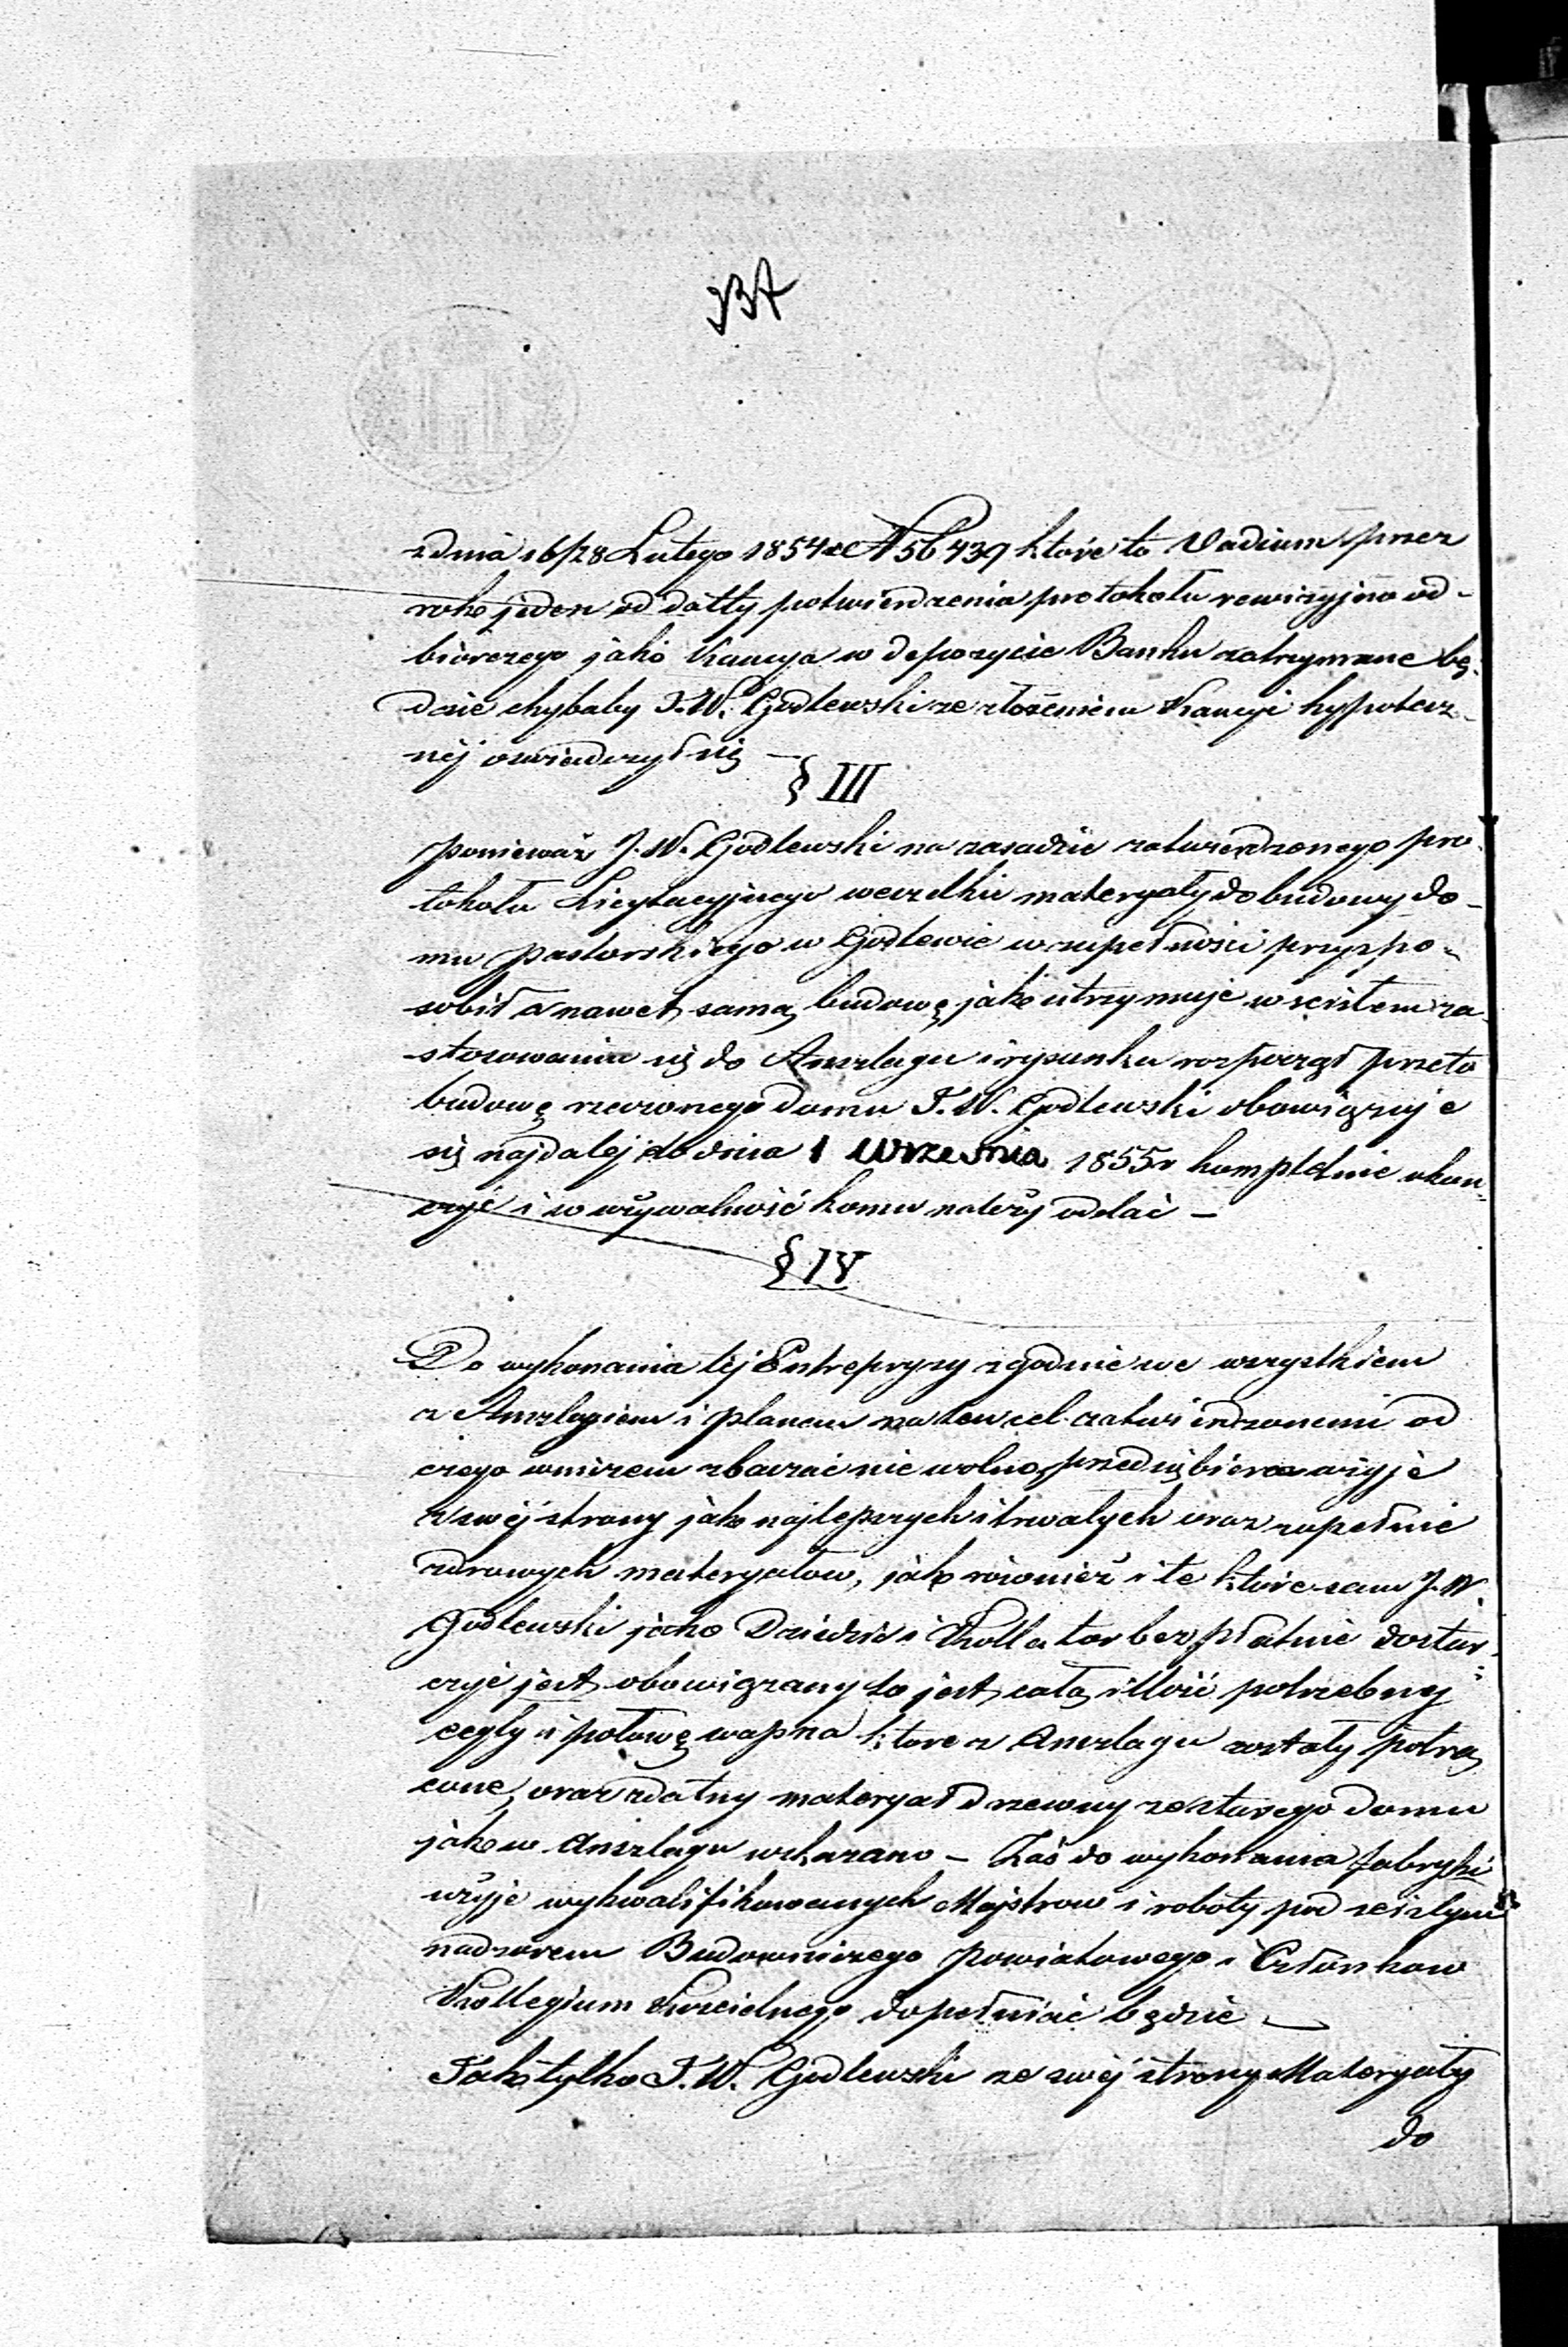 z dnia 16/28 Lutego 1854 r. N 56439 które to Vadium przez
rok jeden od datty potwierdzenia protokołu rewizyjno od-
biorczego jako Kaucya w depozycie Banku zatrzymane bę-
dzie chybaby J.W. Godlewski ze złożeniem Kaucyi hypotecz-
néj oswiadczył się —
§ III
Ponieważ J.W. Godlewski na zasadzie zatwierdzonego pro-
tokołu Licytacyjnego wszelkie materyały do budowy do-
mu pastorskiego w Godlewie w zupełności przyspo-
sobił a nawet samą budowę jak utrzymuje w scisłem za-
stosowaniu się do Anszlagu i rysunku rozpoczął przeto
budowę rzeczonego domu J.W. Godlewski obowiązuje
się najdalej do dnia 1 Września 1855 r kompletnie ukoń-
czyć i w używalność komu należy oddać —
§ IV
Do wykonania téj Entrepryzy zgodnie we wszystkiem
z Anszlagiem i planem na ten cel zatwierdzonemi od
czego w niczem zbaczać nie wolno, przedsiębierca użyje
z swéj strony jak najlepszych i trwałych oraz zupełnie
zdrowych materyałow, jak również i te które sam J.W.
Godlewski jako Dziedzic i Kollator bezpłatnie dostar-
czyć jest obowiązany to jest całą illość potrzebnéj
cegły i połowę wapna które z Anszlagu zostały potrą
cone, oraz zdatny materyał drzewny ze starego domu
jak w Anszlagu wskazano — Zaś do wykonania fabryki
użyje wykwalifikowanych Majstrow i roboty pod scisłym
nadzorem Budowniczego Powiatowego i Członkow
Kollegium Koscielnego dopełniać będzie —
Jak tylko J.W. Godlewski ze swéj strony Materyały
do